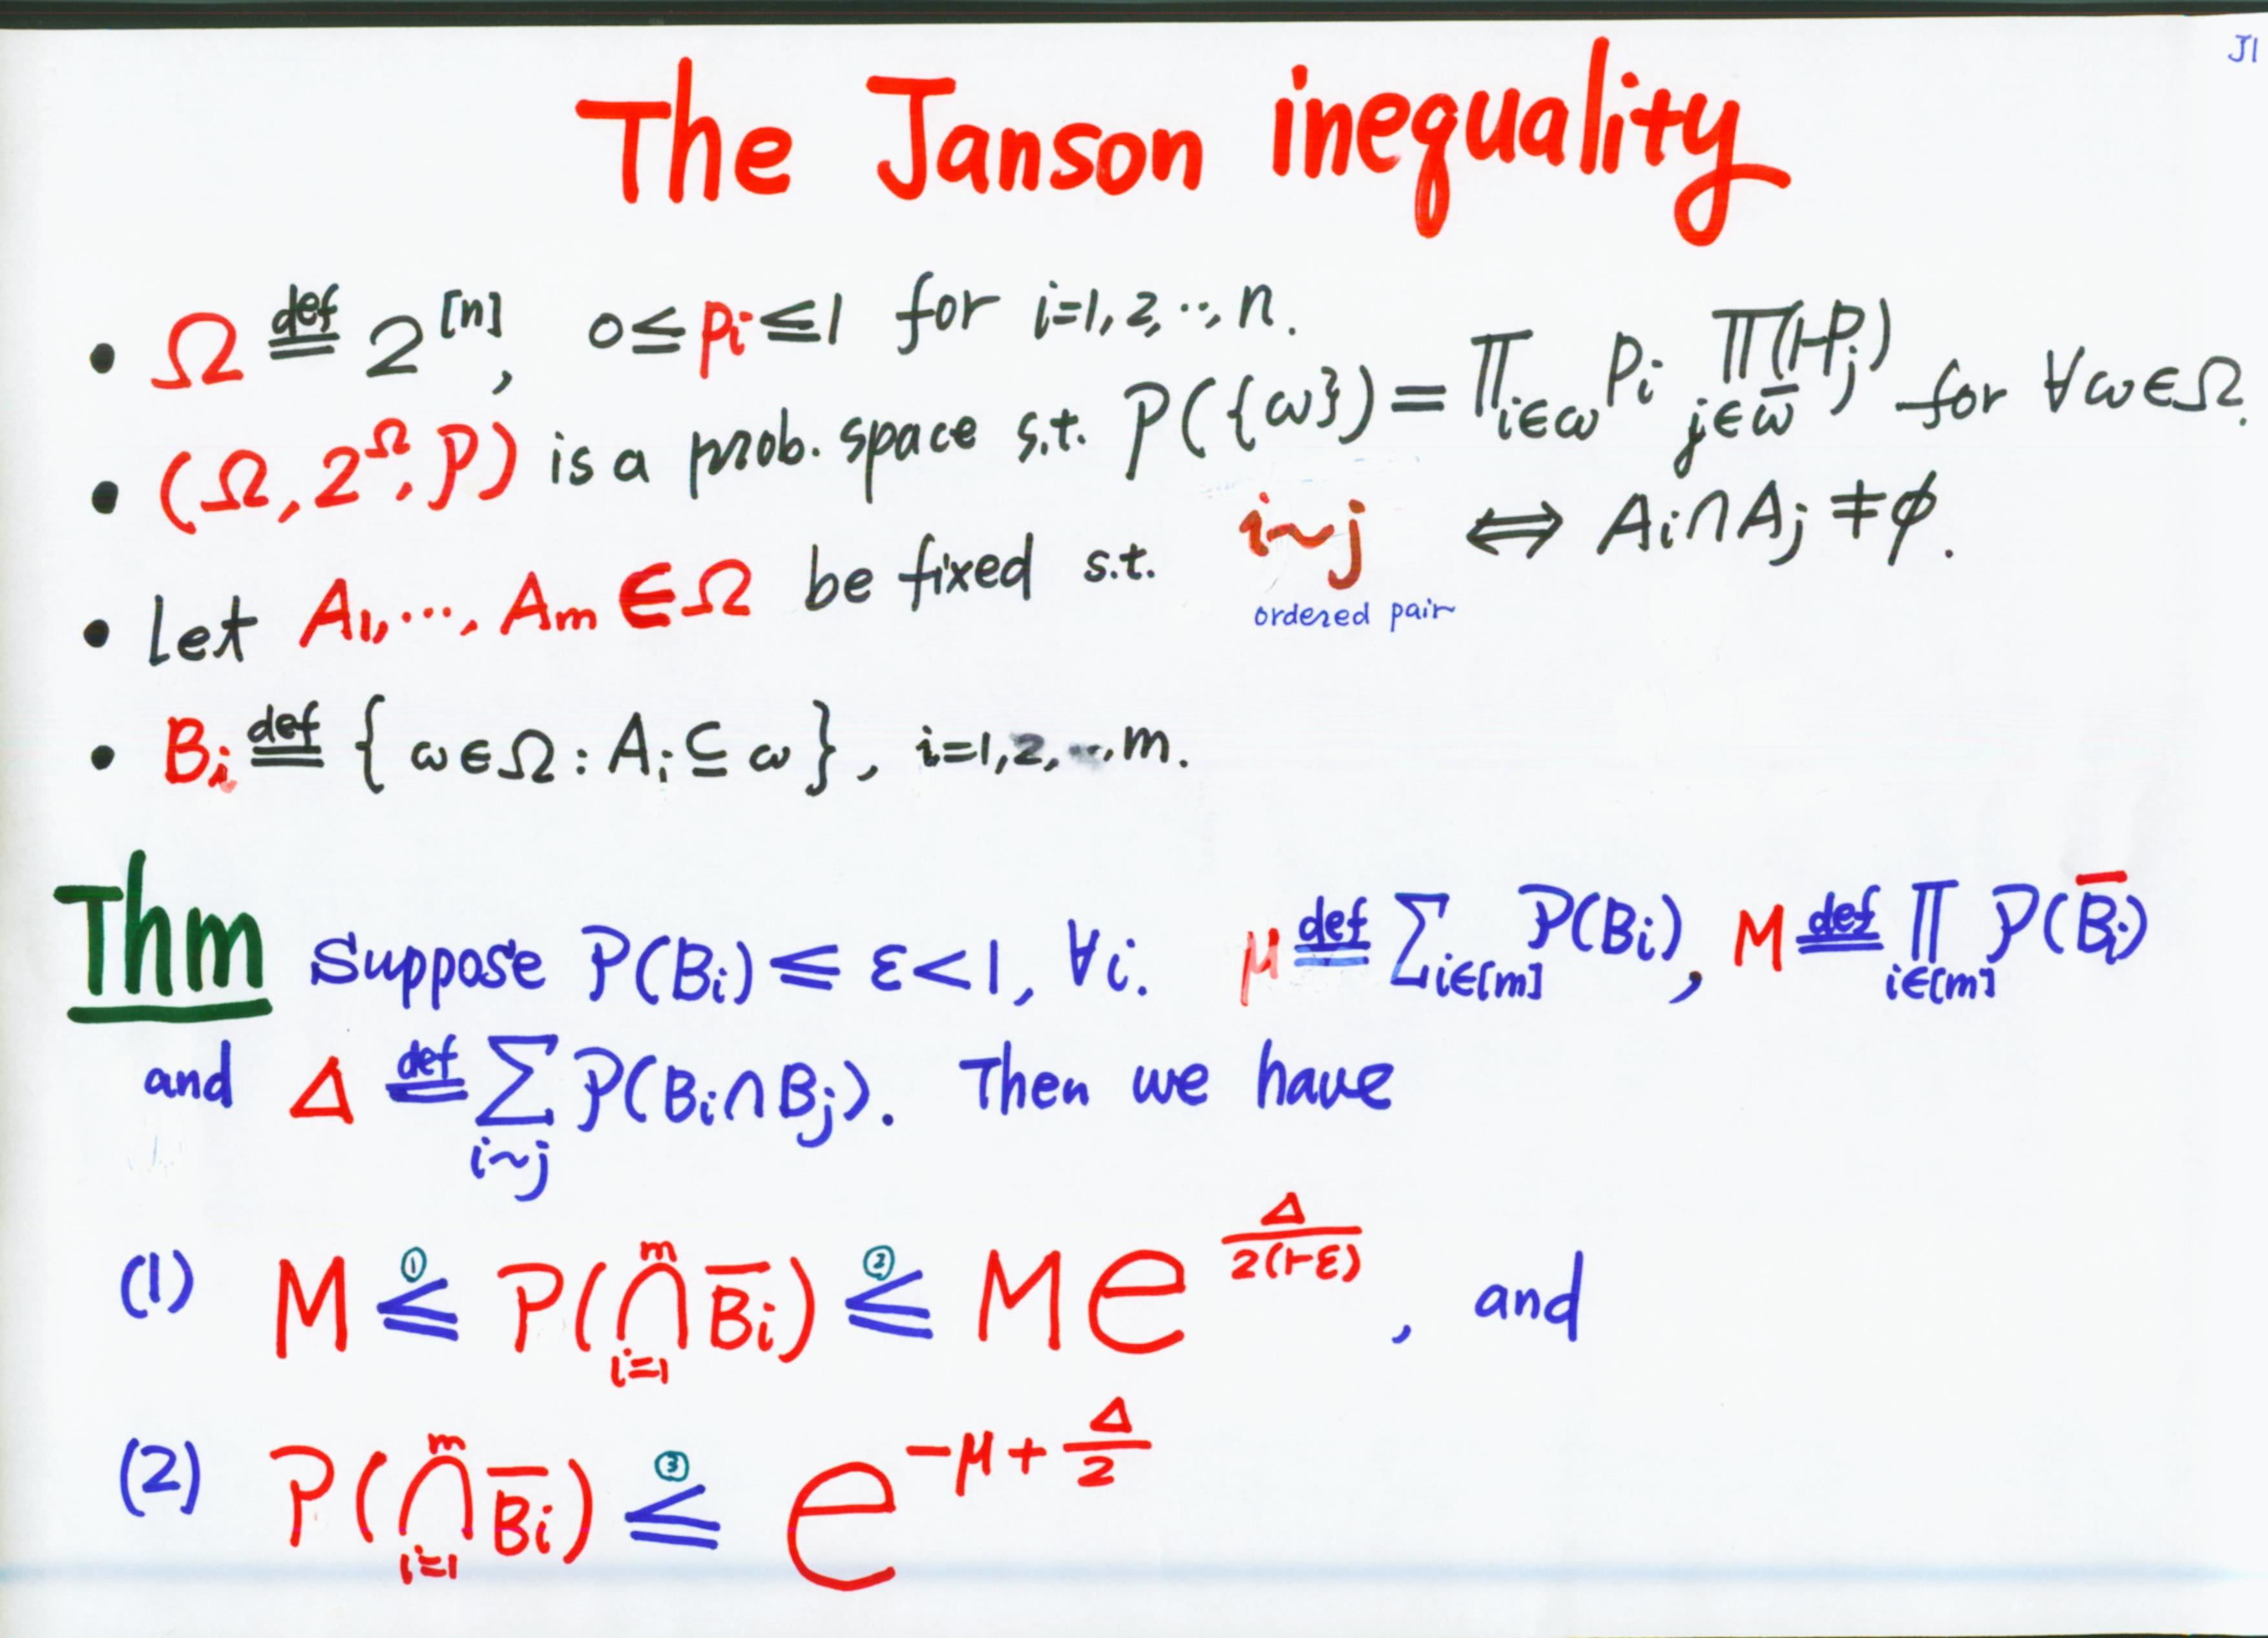 J1
The Janson inequality
• Ω ≝ 2^[n], 0 ≤ pi ≤ 1 for i=1,2,..,n.
• (Ω, 2^Ω, P) is a prob. space s.t. P({ω}) = ∏_{i∈ω} Pi ∏_{j∈ω̅} (1-Pj) for ∀ω∈Ω.
• Let A1, ..., Am ∈ Ω be fixed s.t. i~j ⟺ Ai∩Aj ≠ ϕ.
ordered pair
• Bi ≝ { ω∈Ω : Ai ⊆ ω }, i=1,2,..,m.
Thm Suppose P(Bi) ≤ ε < 1, ∀i. μ ≝ ∑_{i∈[m]} P(Bi), M ≝ ∏_{i∈[m]} P(B̅i)
and Δ ≝ ∑_{i~j} P(Bi∩Bj). Then we have
(1) M ≤^① P(⋂_{i=1}^m B̅i) ≤^② M e^{Δ/2(1-ε)}, and
(2) P(⋂_{i=1}^m B̅i) ≤^③ e^{-μ+Δ/2}